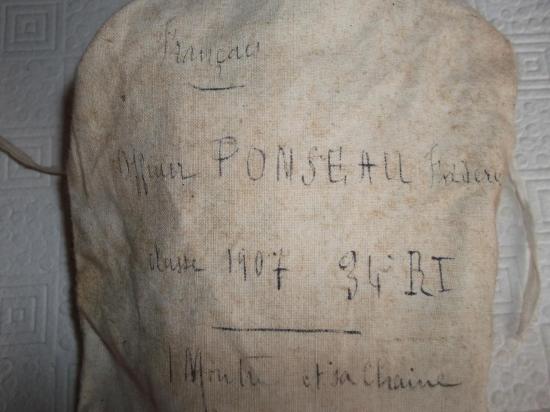 Français
Officier PONSEAU
classe 1907 34e RI
1 Montre et sa chaine